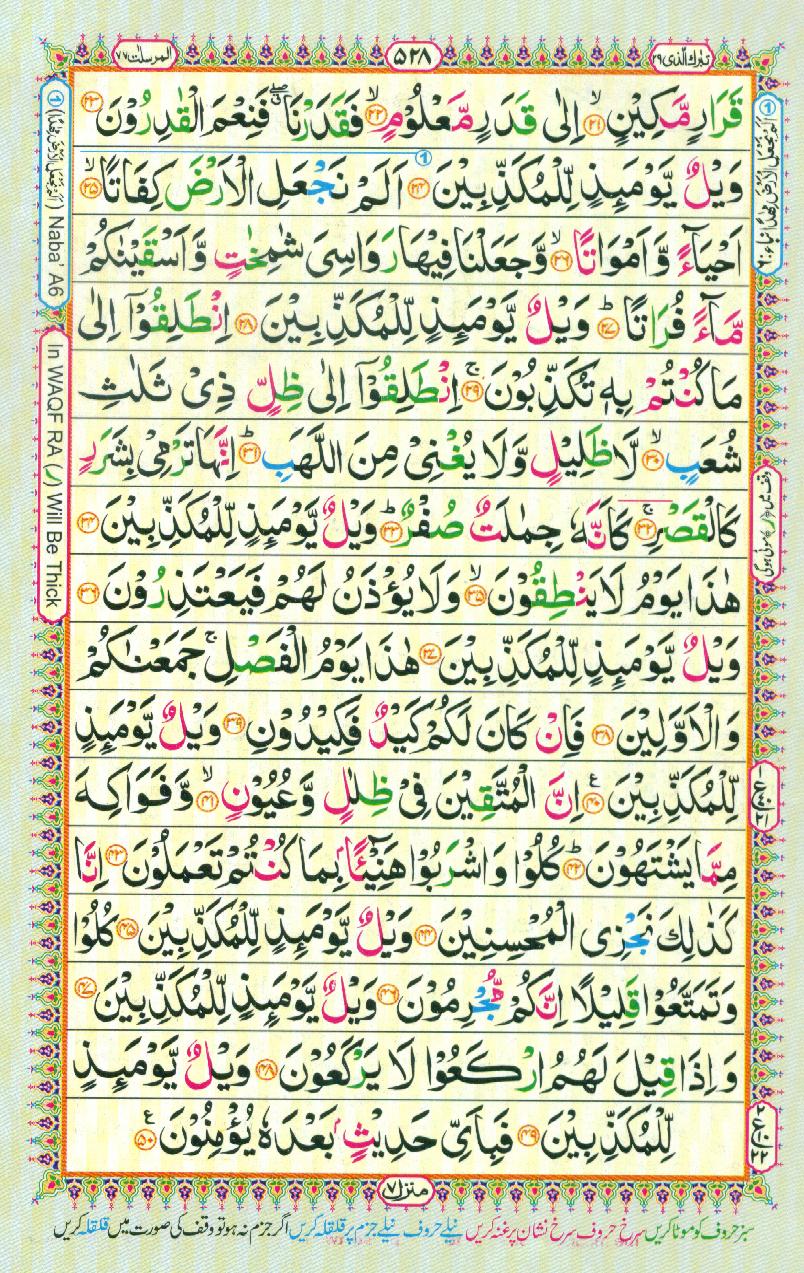 تبٰرك الذی ٢٩
٥٢٨
المرسلٰت ٧٧
قَرَارٍ مَّكِيْنٍ ﴿٢١﴾ اِلٰى قَدَرٍ مَّعْلُوْمٍ ﴿٢٢﴾ فَقَدَرْنَا ۖ فَنِعْمَ الْقٰدِرُوْنَ ﴿٢٣﴾
وَيْلٌ يَّوْمَئِذٍ لِّلْمُكَذِّبِيْنَ ﴿٢٤﴾ اَلَمْ نَجْعَلِ الْاَرْضَ كِفَاتًا ﴿٢٥﴾
اَحْيَآءً وَّ اَمْوَاتًا ﴿٢٦﴾ وَّجَعَلْنَا فِيْهَا رَوَاسِىَ شٰمِخٰتٍ وَّاَسْقَيْنٰكُمْ
مَّآءً فُرَاتًا ﴿٢٧﴾ وَيْلٌ يَّوْمَئِذٍ لِّلْمُكَذِّبِيْنَ ﴿٢٨﴾ اِنْطَلِقُوْٓا اِلٰى
مَا كُنْتُمْ بِهٖ تُكَذِّبُوْنَ ﴿٢٩﴾ اِنْطَلِقُوْٓا اِلٰى ظِلٍّ ذِىْ ثَلٰثِ
شُعَبٍ ﴿٣٠﴾ لَّا ظَلِيْلٍ وَّلَا يُغْنِىْ مِنَ اللَّهَبِ ﴿٣١﴾ اِنَّهَا تَرْمِىْ بِشَرَرٍ
كَالْقَصْرِ ﴿٣٢﴾ كَاَنَّهٗ جِمٰلَتٌ صُفْرٌ ﴿٣٣﴾ وَيْلٌ يَّوْمَئِذٍ لِّلْمُكَذِّبِيْنَ ﴿٣٤﴾
هٰذَا يَوْمُ لَا يَنْطِقُوْنَ ﴿٣٥﴾ وَلَا يُؤْذَنُ لَهُمْ فَيَعْتَذِرُوْنَ ﴿٣٦﴾
وَيْلٌ يَّوْمَئِذٍ لِّلْمُكَذِّبِيْنَ ﴿٣٧﴾ هٰذَا يَوْمُ الْفَصْلِ ۚ جَمَعْنٰكُمْ
وَالْاَوَّلِيْنَ ﴿٣٨﴾ فَاِنْ كَانَ لَكُمْ كَيْدٌ فَكِيْدُوْنِ ﴿٣٩﴾ وَيْلٌ يَّوْمَئِذٍ
لِّلْمُكَذِّبِيْنَ ﴿٤٠﴾ اِنَّ الْمُتَّقِيْنَ فِىْ ظِلٰلٍ وَّعُيُوْنٍ ﴿٤١﴾ وَّفَوَاكِهَ
مِمَّا يَشْتَهُوْنَ ﴿٤٢﴾ كُلُوْا وَاشْرَبُوْا هَنِيْٓئًا ۢ بِمَا كُنْتُمْ تَعْمَلُوْنَ ﴿٤٣﴾ اِنَّا
كَذٰلِكَ نَجْزِى الْمُحْسِنِيْنَ ﴿٤٤﴾ وَيْلٌ يَّوْمَئِذٍ لِّلْمُكَذِّبِيْنَ ﴿٤٥﴾ كُلُوْا
وَتَمَتَّعُوْا قَلِيْلًا اِنَّكُمْ مُّجْرِمُوْنَ ﴿٤٦﴾ وَيْلٌ يَّوْمَئِذٍ لِّلْمُكَذِّبِيْنَ ﴿٤٧﴾
وَاِذَا قِيْلَ لَهُمُ ارْكَعُوْا لَا يَرْكَعُوْنَ ﴿٤٨﴾ وَيْلٌ يَّوْمَئِذٍ
لِّلْمُكَذِّبِيْنَ ﴿٤٩﴾ فَبِاَىِّ حَدِيْثٍ ۢ بَعْدَهٗ يُؤْمِنُوْنَ ﴿٥٠﴾
Naba' A6
In WAQF RA (ر) Will Be Thick
منزل ٧
سبز حروف کو موٹا کریں سرخ حروف سرخ نشان پر غنہ کریں نیلے حروف نیلے جزم پر قلقلہ کریں اگر جزم نہ ہو تو وقف کی صورت میں قلقلہ کریں